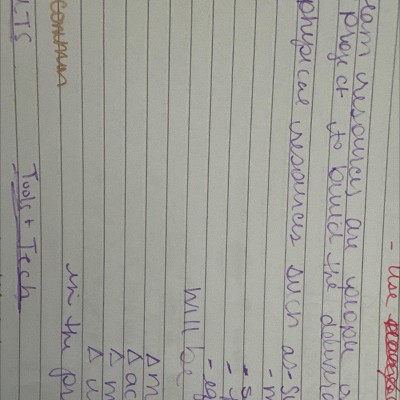 - Use
eam resources are people o
project to build the delivera
physical resources such as-su
- m
- s
- eq
will be
Δ m
Δ ac
Δ m
Δ u
in the pr
common
Tools + Tech
LTS